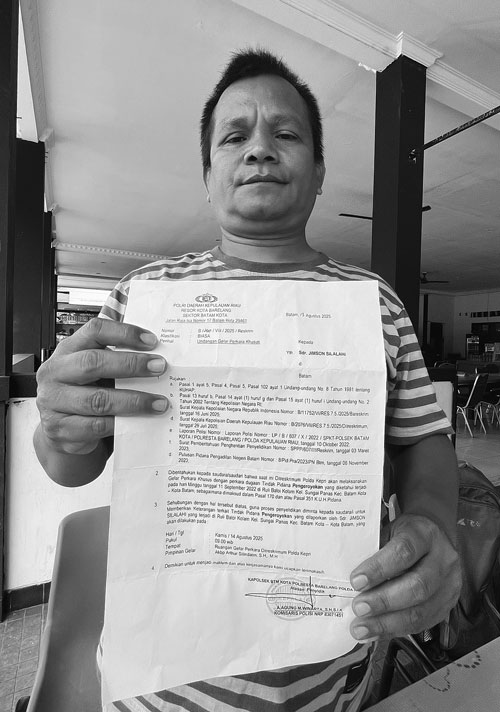 POLRI DAERAH KEPULAUAN RIAU
RESOR KOTA BARELANG
SEKTOR BATAM KOTA
Batam, Agustus 2025
Nomor : B / / VIII / 2025 / Reskrim
Klasifikasi : BIASA
Perihal : Undangan Gelar Perkara Khusus
Kepada
Yth. Sdr. JIMSON SILALAHI
di
Batam
1. Rujukan :
a. Pasal 1 ayat 5, Pasal 4, Pasal 5, Pasal 102 ayat 1 Undang-undang No. 8 Tahun 1981 tentang
KUHAP;
b. Pasal 13 huruf b, Pasal 14 ayat (1) huruf g dan Pasal 15 ayat (1) huruf Undang-undang No. 2
Tahun 2002 Tentang Kepolisian Negara RI;
c. Surat Kepala Kepolisian Negara Republik Indonesia Nomor: 7.5./2025/Bareskrim
tanggal 16 Juni 2025.
d. Surat Kepala Kepolisian Daerah Kepulauan Riau Nomor: 7.5./2025/Ditreskrimum
tanggal 26 Juni 2025.
e. Laporan Polisi Nomor : Laporan Polisi Nomor : LP / B / 637 / X / 2022 / SPKT-POLSEK BATAM
KOTA / POLRESTA BARELANG / POLDA KEPULAUAN RIAU, tanggal 10 Oktober 2022.
f. Surat Pemberitahuan Penghentian Penyelidikan Nomor: tanggal 03 Maret
2023.
g. Putusan Pidana Pengadilan Negeri Batam Nomor : 8/Pid.Pra/2023/PN Btm, tanggal 08 November
2023.
2. Diberitahukan kepada saudara bahwa saat ini Ditreskrimum Polda Kepri akan melaksanakan
Gelar Perkara Khusus dengan perkara dugaan Tindak Pidana Pengeroyokan yang diketahui terjadi
pada hari Minggu tanggal 11 September 2022 di Ruli Baloi Kolam Kel. Sungai Panas Kec. Batam Kota
– Kota Batam, sebagaimana dimaksud dalam Pasal 170 dan atau Pasal 351 K.U.H.Pidana
3. Sehubungan dengan hal tersebut diatas, guna proses penyelidikan diminta kepada saudara untuk
Memberikan Keterangan terkait Tindak Pidana Pengeroyokan yang dilaporkan oleh Sdr. JIMSON
SILALAHI yang terjadi di Ruli Baloi Kolam Kel. Sungai Panas Kec. Batam Kota – Kota Batam, yang
akan dilaksanakan pada :
Hari / Tgl : Kamis / 14 Agustus 2025
Pukul : 09.00 wib
Tempat : Ruangan Gelar Perkara Ditreskrimum Polda Kepri
Pimpinan Gelar : Akbp Arthur Sitindaon, S.H., M.H
4. Demikian untuk menjadi maklum dan atas kerjasamanya kami ucapkan terimakasih.
KAPOLSEK BTM KOTA POLRESTA BARELANG POLDA
Penyidik
KOMISARIS POLISI NRP